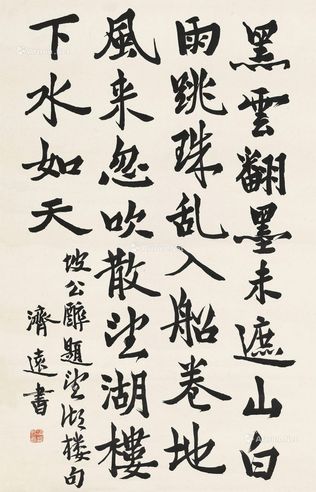 黑雲翻墨未遮山白
雨跳珠乱入船卷地
風来忽吹散望湖樓
下水如天
坡公醉題望湖楼句
濟遠書